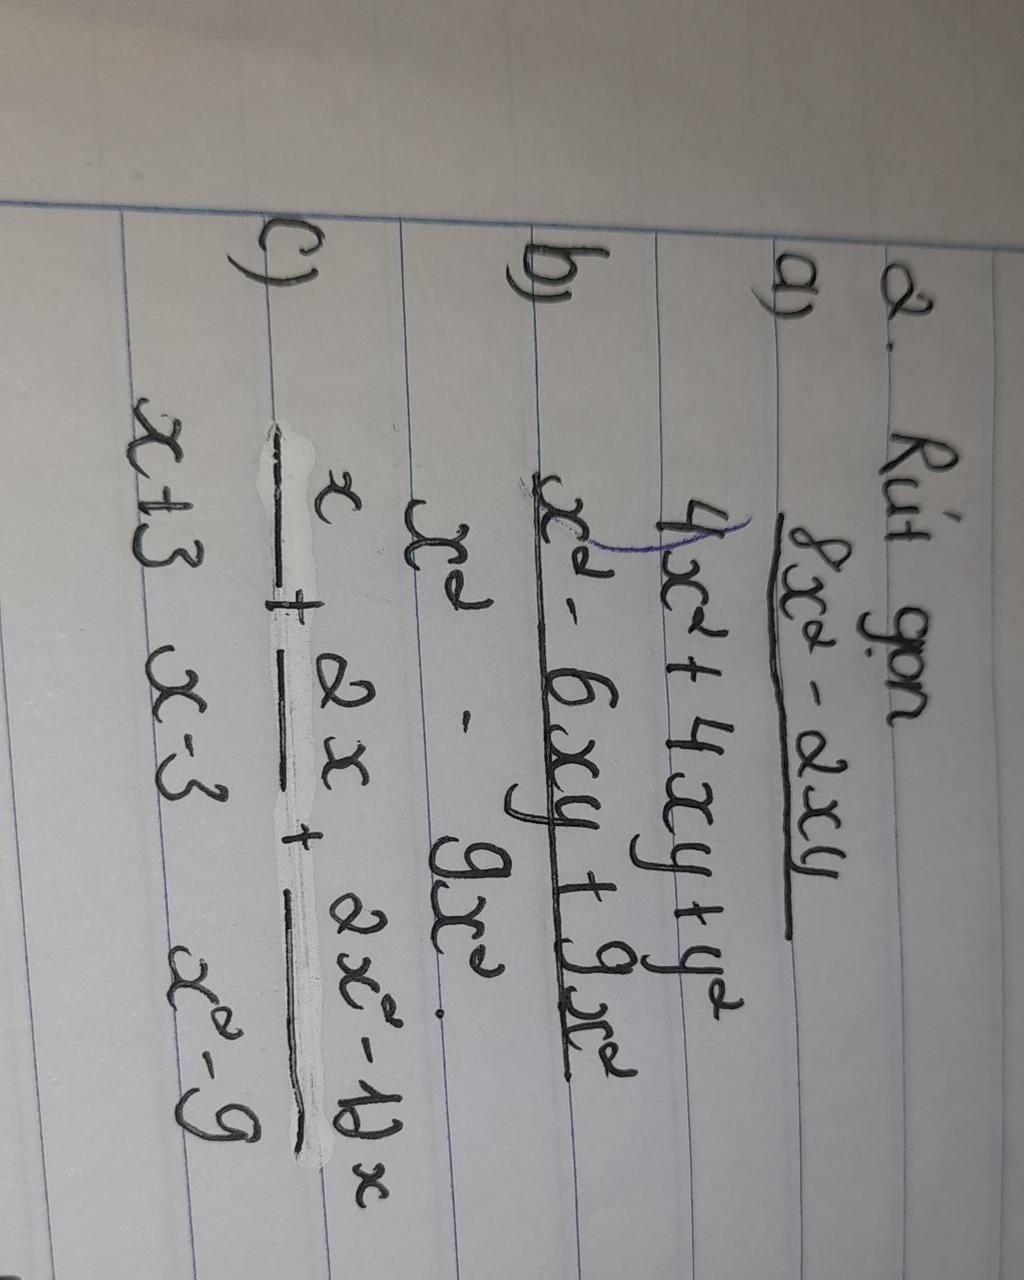 2. Rút gọn
a) 8x² - 2xy
4x² + 4xy + y²
b) x² - 6xy + 9x²
x² - 9x².
c) x + 2x + 2x² - 12x
x+3 x-3 x² - 9